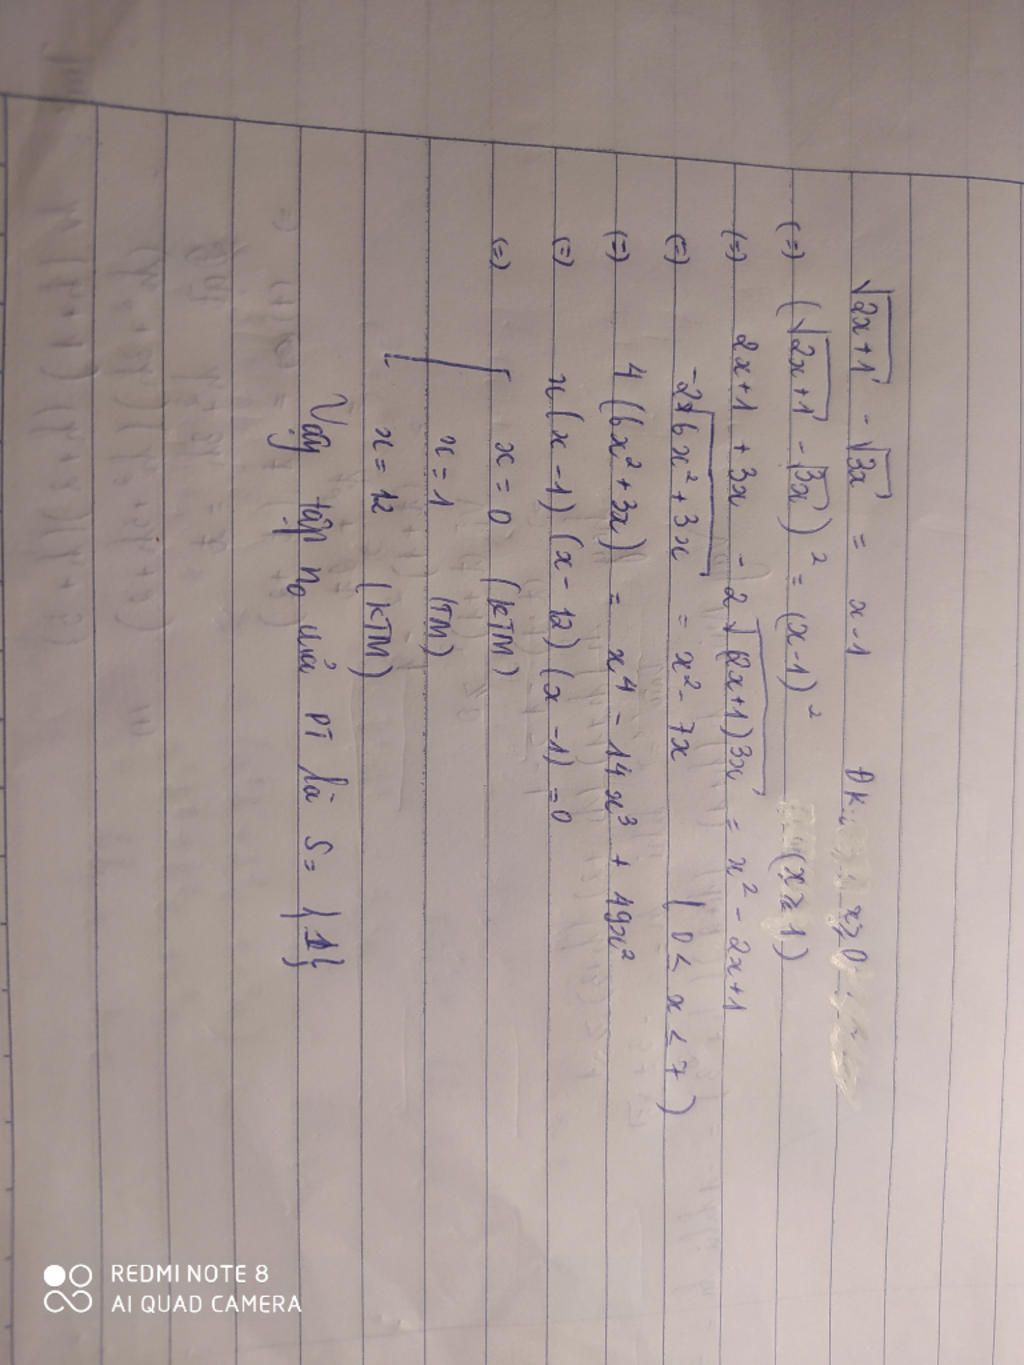 √2x+1 - √3x = x-1 ĐK: x≥0
(=) (√2x+1 - √3x)² = (x-1)² (x≥1)
(=) 2x+1 + 3x - 2√(2x+1)3x = x² - 2x+1
(=) -2√6x²+3x = x² - 7x (0 < x < 7)
(=) 4(6x²+3x) = x⁴ - 14x³ + 49x²
(=) x(x-1)(x-12)(x-1) = 0
(=) [ x = 0 (KTM)
x = 1 (TM)
x = 12 (KTM)
Vậy tập no của PT là S = {1}
REDMI NOTE 8
AI QUAD CAMERA